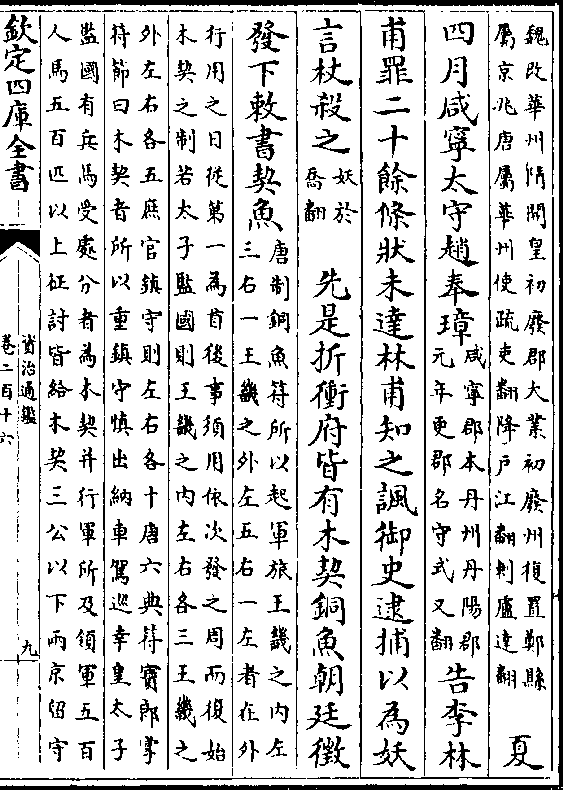 魏改華州隋開皇初廢郡大業初廢州復置鄭縣
屬京兆唐屬華州使疏吏翻降戶江翻刺盧達翻
夏
四月咸寧太守趙奉璋
咸寧郡本丹州丹陽郡
元年更郡名守式又翻
告李林
甫罪二十餘條狀未達林甫知之諷御史逮捕以為妖
言杖殺之
妖於
喬翻
先是折衝府皆有木契銅魚朝廷徵
發下敕書契魚
唐制銅魚符所以起軍旅王畿之内左
三右一王畿之外左五右一左者在外
行用之日從第一為首後事須用依次發之周而復始
木契之制若太子監國則王畿之内左右各三王畿之
外左右各五庶官鎮守則左右各十唐六典符寳郎掌
符節曰木契者所以重鎮守慎出納車駕巡幸皇太子
監國有兵馬受處分者為木契并行軍所及領軍五百
人馬五百匹以上征討皆給木契三公以下兩京留守
欽定四庫全書
資治通鑑
卷二百十六
九